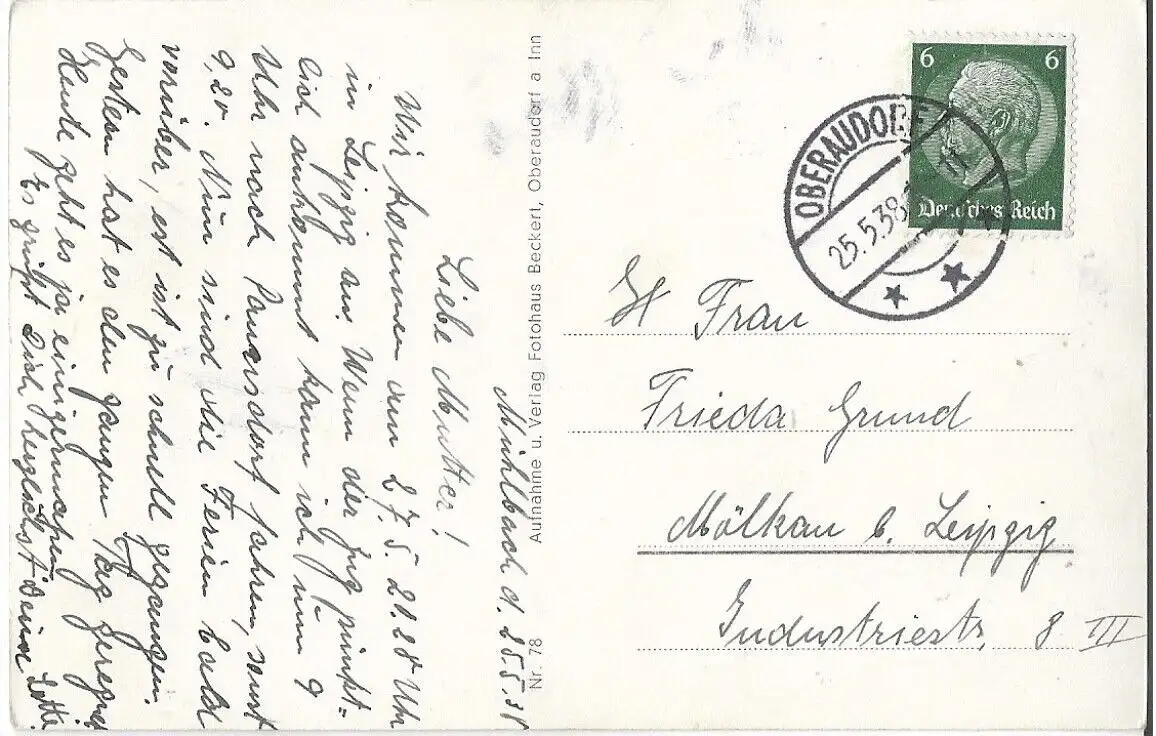 Mühlbach d. 25.5.38
Liebe Mutter!
Wir kommen am 27.5. 21.28 Uhr
in Leipzig an. Wenn der Zug pünkt-
lich ankommt kann ich um 9
Uhr nach Paunsdorf fahren, sonst
9,20. Nun sind die Ferien bald
vorüber, es ist zu schnell gegangen.
Gestern hat es den ganzen Tag geregnet
Heute geht es ja einigermaßen
Es grüßt Dich herzlichst Deine Lotte.
Nr. 78 Aufnahme u. Verlag Fotohaus Beckert, Oberaudorf a Inn
6 6
Deutsches Reich
OBERAUDORF
25.5.38
Frau
Frieda Grund
Mölkau b. Leipzig
Industriestr. 8 III